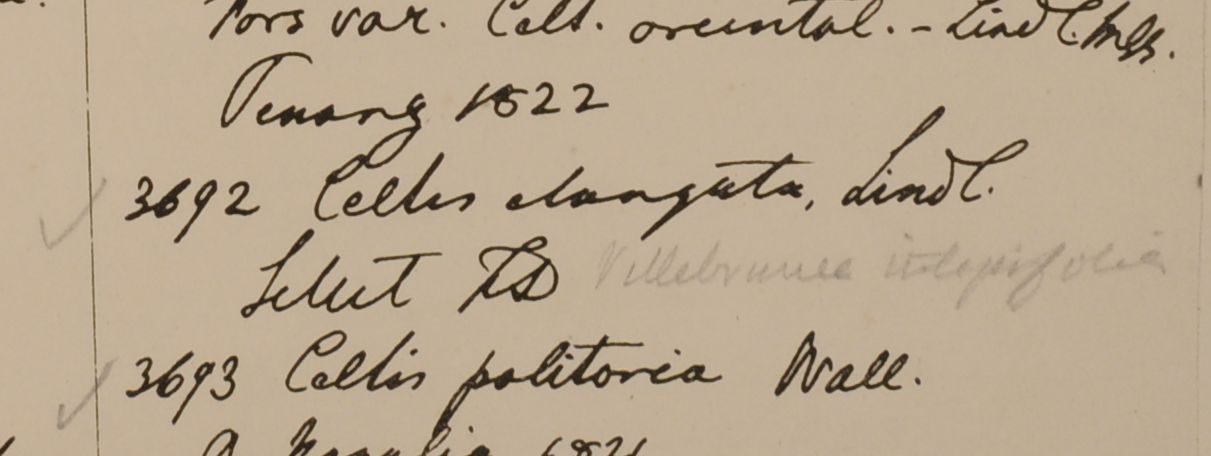 Fors var. Celt. oriental. - Lindl. Mss.
Penang 1822
3692 Celtis elongata, Lindl.
Silhet FD Villebrunea integrifolia
3693 Celtis politoria Wall.
Napalia 1821